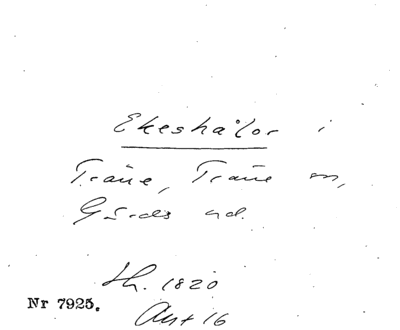 Ekeshålor i
Träne, Träne sn,
Gärds hd.
th. 1820
Ant 16
Nr 7925.